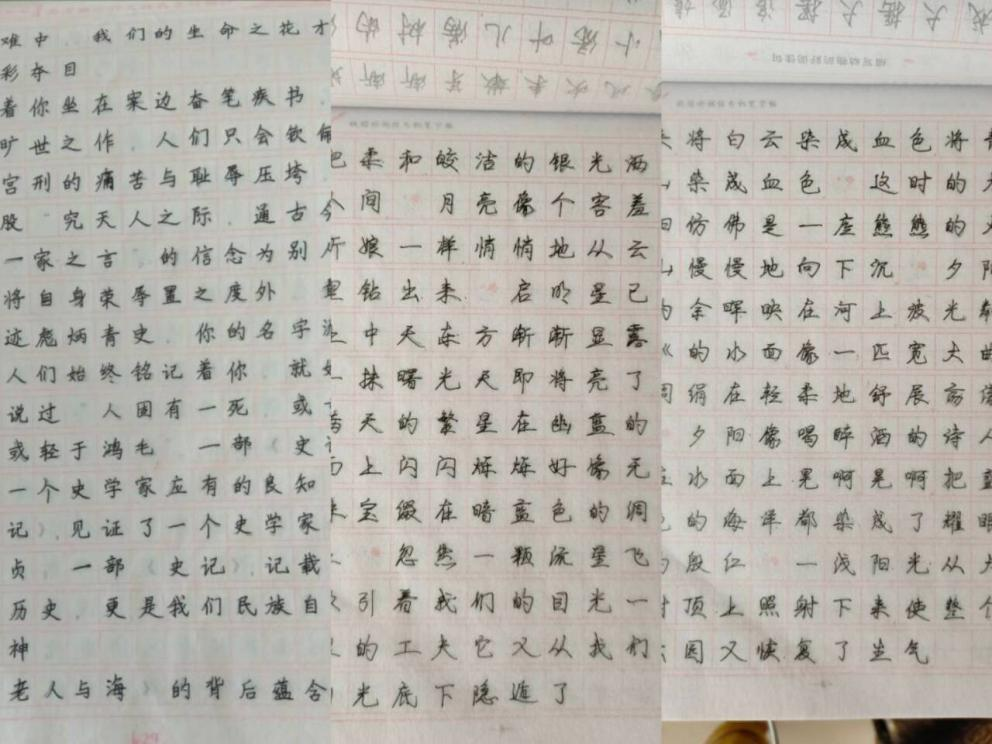 难中，我们的生命之花才
彩夺目
着你坐在案边奋笔疾书，
旷世之作，人们只会钦佩
宫刑的痛苦与耻辱压垮，
股"究天人之际，通古今
一家之言"的信念为别
将自身荣辱置之度外
迹彪炳青史，你的名字流
人们始终铭记着你，就如
说过 人固有一死，或
或轻于鸿毛 一部《史
一个史学家应有的良知
记》，见证了一个史学家
贞，一部《史记》，记载
历史，更是我们民族自
神
老人与海》的背后蕴含
小活叶儿满树的
渐渐
把柔和皎洁的银光洒
人间 月亮像个害羞
娘一样悄悄地从云
里钻出来 启明星已
中天东方渐渐显露
一抹曙光天即将亮了
满天的繁星在幽蓝的
上闪闪烁烁好像无
宝缀在暗蓝色的绸
忽然一颗流星飞
吸引着我们的目光一
的工夫它又从我们
光底下隐遁了
描写动物的好词佳句
将白云染成血色将青
山染成血色 这时的太
阳仿佛是一座熊熊的火
山慢慢地向下沉 夕阳
的余晖映在河上波光粼
粼的水面像一匹宽大的
绸绢在轻柔地舒展
夕阳像喝醉酒的诗人
在水面上晃啊晃啊把蓝
色的海洋都染成了耀眼
的殷红 一浅阳光从大
树顶上照射下来使整个
公园又恢复了生气